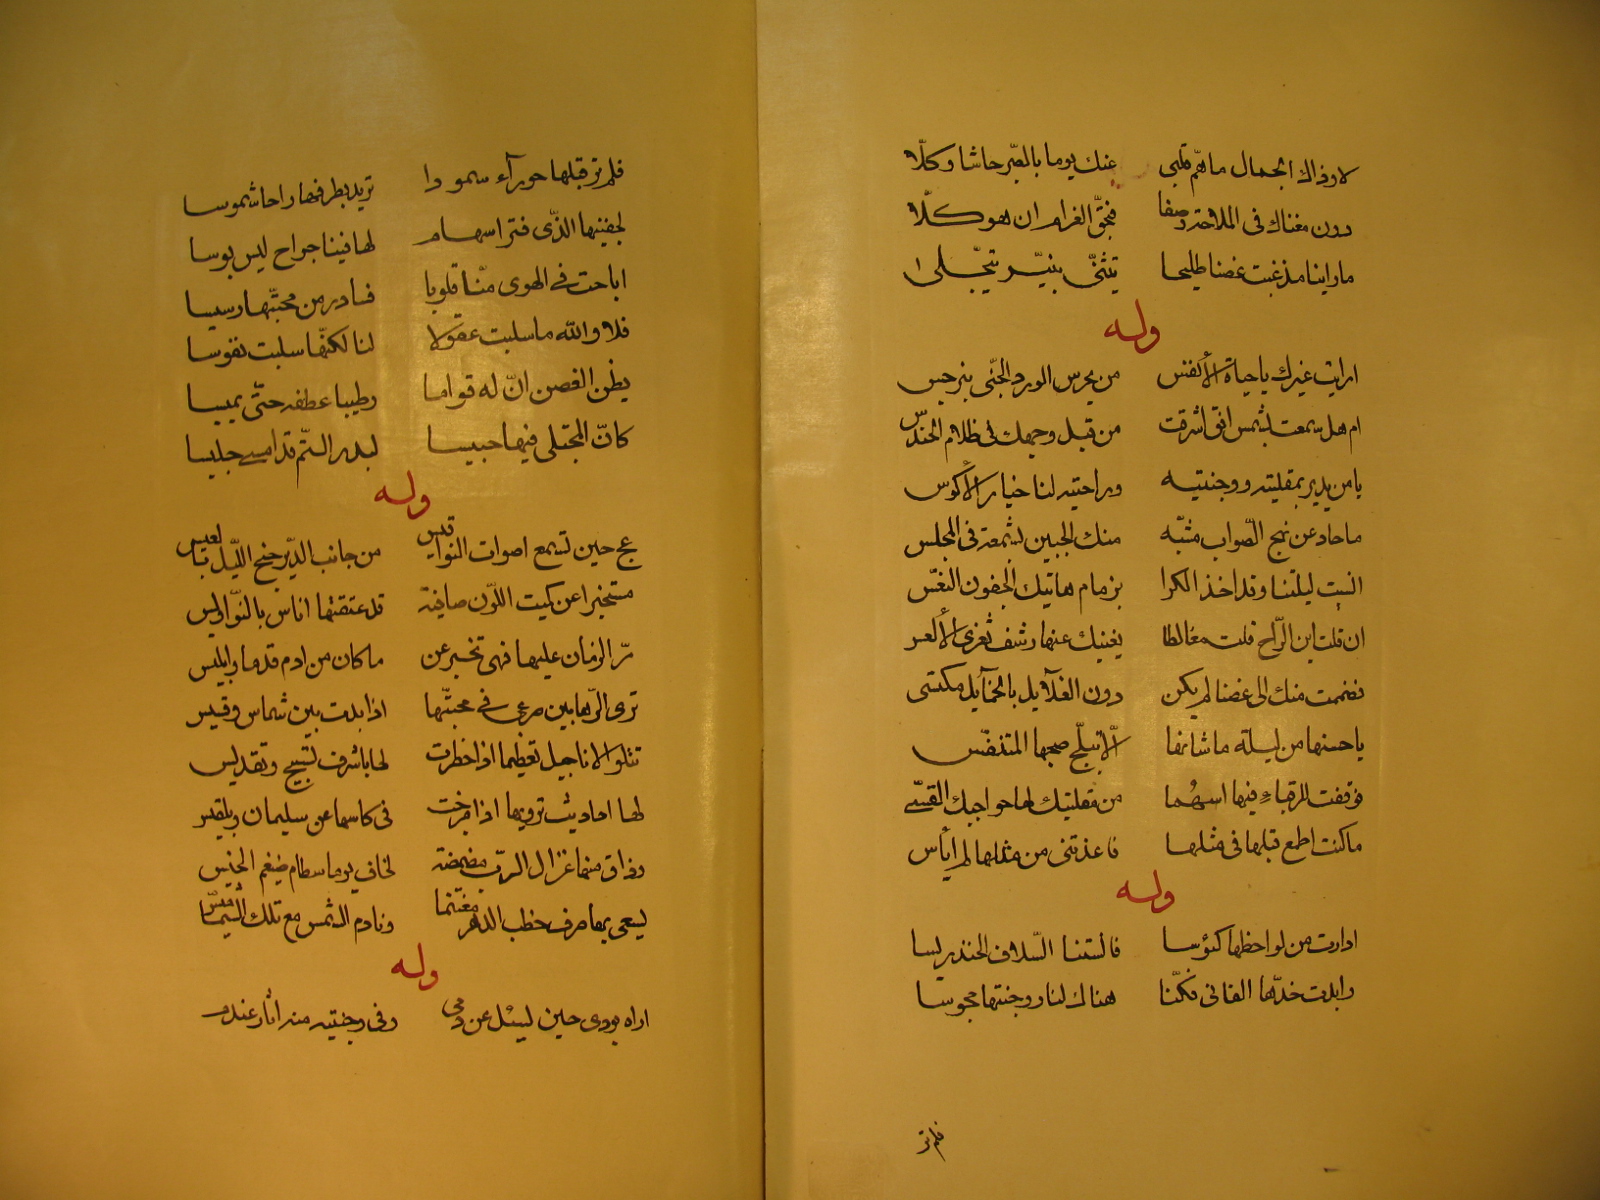 لا وذاك الجمال ما همّ قلبي عنك يوما بالصبر حاشا وكلّا
دون مغناك في الملاحة وصفا فبحقّ الغرام ان هو كلّا
ما راينا مذ غبت غصنا طليحا يتثنّى بنيّر يتجلّى
وله
ارايت غيرك يا حياة الأنفس من يحرس الورد الجنّى بنرجس
ام هل سمعت بشمس افق اشرقت من قبل وجهك في ظلام الحندس
يا من يدير بمقلتيه ووجنتيه وراحتيه لنا خيار الأكوس
ما حاد عن نهج الصّواب مشبّه منك الجبين بشمعة في المجلس
انسيت ليلتنا وقد اخذ الكرا بزمام هاتيك الجفون النعّس
ان قلت اين الرّاح قلت مغالطا يغنيك عنها رشف ثغرى الألعس
فضممت منك الى غصنا لم يكن دون الغلآيل بالخمآيل مكتسى
يا حسنها من ليلة ما شانها الّا تبلّج صبحها المتنفّس
فوقفت للرقباء فيها اسهما من مقلتيك لها حواجبك القسّى
ما كنت اطمع قبلها في مثلها فاعذتنى من مثلها لم ايأس
وله
ادارت من لواحظها كئوسا فانستنا السّلاف الخندريسا
وابدت خدّها القانى فكنّا هناك لنار وجنتها مجوسا
فلم تر
فلم تر قبلها حورآء سمودا تريد بطرفها راحا شموسا
لجفنيها الذّى فتر اسهام لها فينا جراح ليس يوسا
اباحت في الهوى منّا قلوبا فسادر من محبّتها رسيسا
فلا والله ما سلبت عقولا لنا لكنّها سلبت نفوسا
يظن الغصن انّ له قواما رطيبا عطفه حتّى يميسا
كانّ المجتلى فيها حبيسا لبدر التّم قد امسى جليسا
وله
عج حين تسمع اصوات النواقيس من جانب الدّير جنح اللّيل بالعيس
مستخبرا عن كميت اللّون صافية قد عتقتها اناس بالنّواويس
مرّ الزمان عليها فهى تخبر عن ما كان من ادم قدما وابليس
ترى الرّهابين صرعى في محبّتها اذا بدت بين شماس وقسيس
تتلو الاناجيل تعظيما اذا خطرت لها باشرف تسبيح وتقديس
لها احاديث ترويها اذا مزجت في كاسها عن سليمان وبلقيس
وذاق منها غزال الرب مضمضة لخاف يوما سطاه ضيغم الخيس
يسعى بها صرف خطب الدهر مغتنما ونادم الشمس مع تلك الشماميس
وله
اراه يورى حين يسئل عن دمى وفى وجنتيه منه اثار عندم